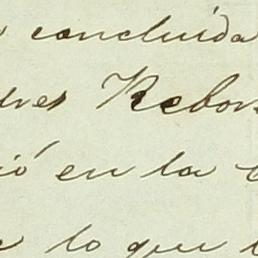 concluida
dres Rebor
ió en la
lo que